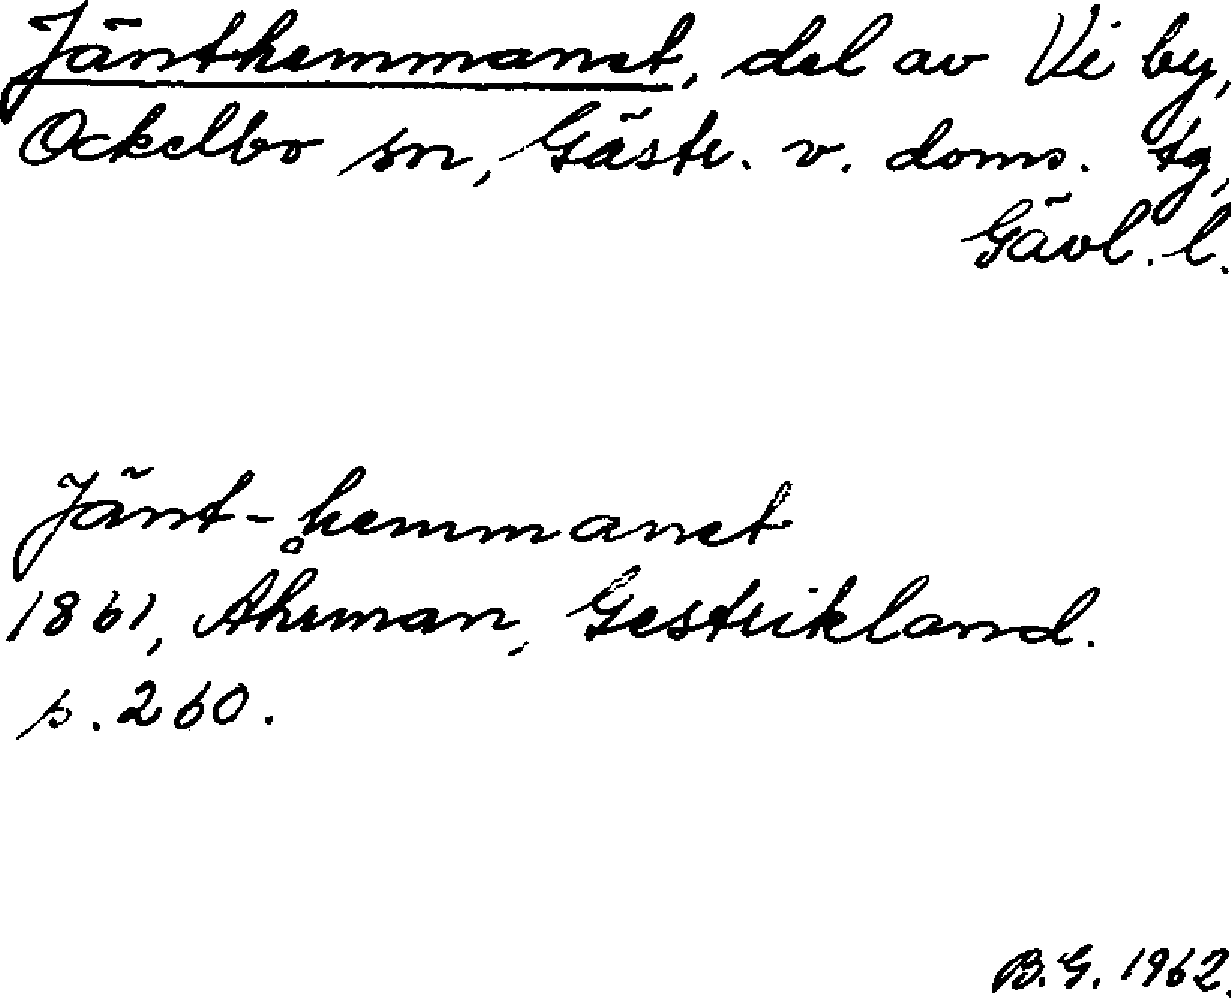 Jänthemmanet, del av Vi by,
Ockelbo sn, Gästr. v. doms. tg,
Gävl. l.
Jänt-hemmanet
1861, Åhrman, Gestrikland.
s. 260.
B.G. 1962.